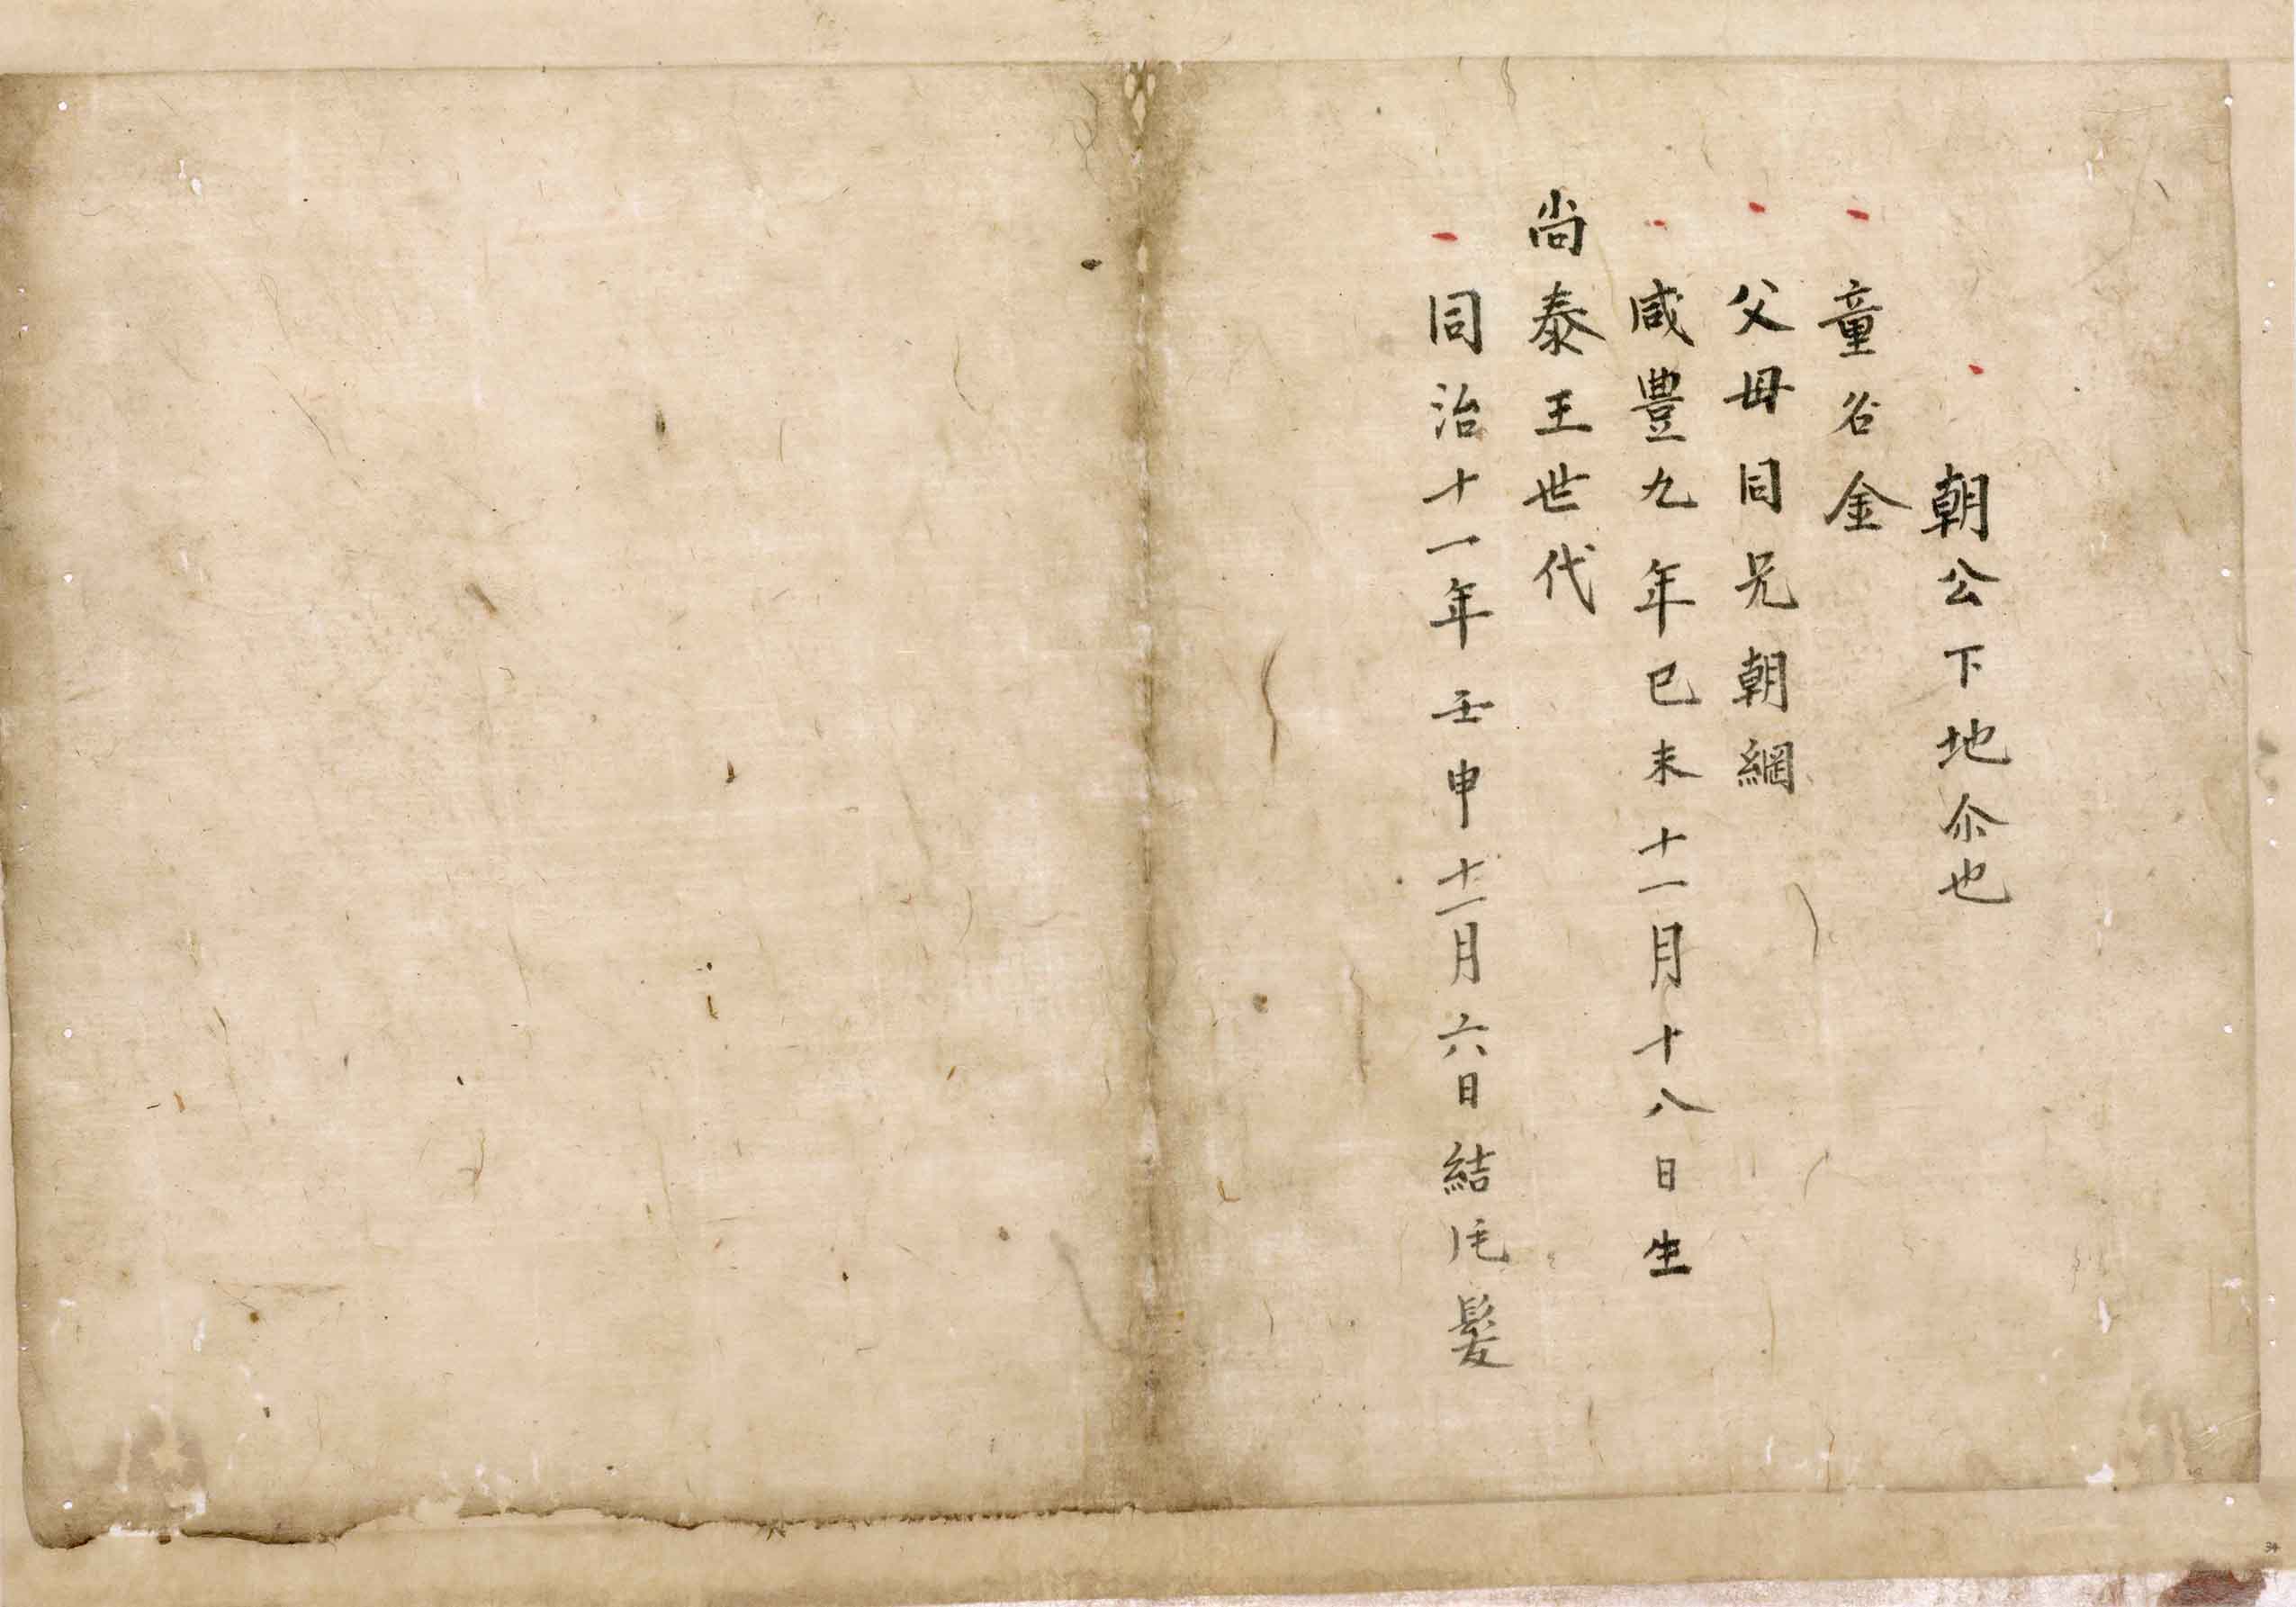 朝公下地尒也
童名金
父母同兄朝綱
咸豐九年己未十一月十八日生
尚泰王世代
同治十一年壬申十二月六日結髪
34